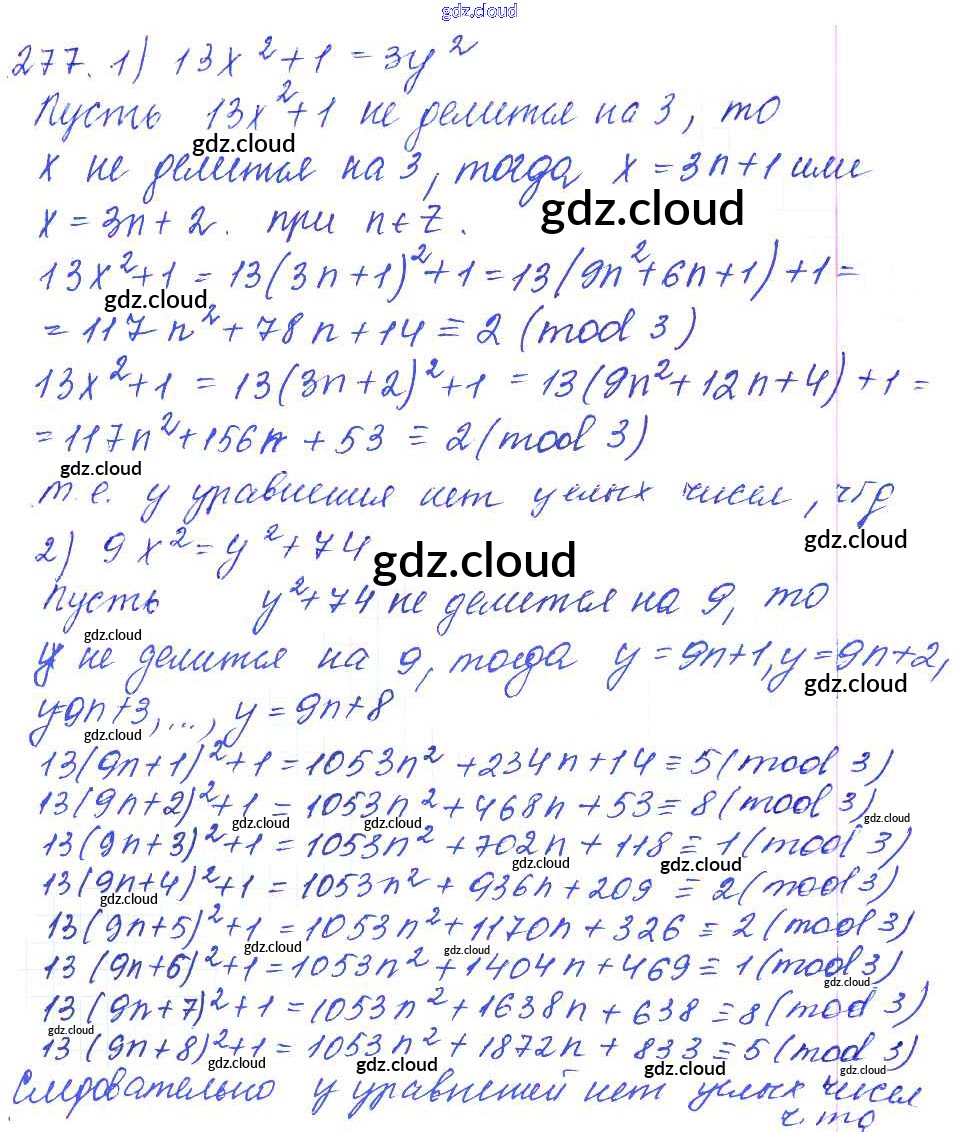 gdz.cloud
277. 1) 13x² + 1 = 3y²
Пусть 13x² + 1 не делится на 3, то
gdz.cloud
x не делится на 3, тогда x = 3n + 1 или
x = 3n + 2. при n ∈ Z.
gdz.cloud
13x² + 1 = 13(3n + 1)² + 1 = 13(9n² + 6n + 1) + 1 =
gdz.cloud
= 117n² + 78n + 14 ≡ 2 (mod 3)
13x² + 1 = 13(3n + 2)² + 1 = 13(9n² + 12n + 4) + 1 =
= 117n² + 156n + 53 ≡ 2 (mod 3)
gdz.cloud
т.е. у уравнения нет целых чисел, чтд
gdz.cloud
2) 9x² = y² + 74
gdz.cloud
Пусть y² + 74 не делится на 9, то
gdz.cloud
y не делится на 9, тогда y = 9n + 1, y = 9n + 2,
gdz.cloud
y = 9n + 3, ..., y = 9n + 8
13(9n + 1)² + 1 = 1053n² + 234n + 14 ≡ 5 (mod 3)
13(9n + 2)² + 1 = 1053n² + 468n + 53 ≡ 8 (mod 3)
gdz.cloud gdz.cloud gdz.cloud
13(9n + 3)² + 1 = 1053n² + 702n + 118 ≡ 1 (mod 3)
gdz.cloud gdz.cloud
13(9n + 4)² + 1 = 1053n² + 936n + 209 ≡ 2 (mod 3)
gdz.cloud
13(9n + 5)² + 1 = 1053n² + 1170n + 326 ≡ 2 (mod 3)
gdz.cloud gdz.cloud
13(9n + 6)² + 1 = 1053n² + 1404n + 469 ≡ 1 (mod 3)
13(9n + 7)² + 1 = 1053n² + 1638n + 638 ≡ 8 (mod 3)
gdz.cloud gdz.cloud
13(9n + 8)² + 1 = 1053n² + 1872n + 833 ≡ 5 (mod 3)
gdz.cloud gdz.cloud gdz.cloud
Следовательно у уравнений нет целых чисел
ч.тд